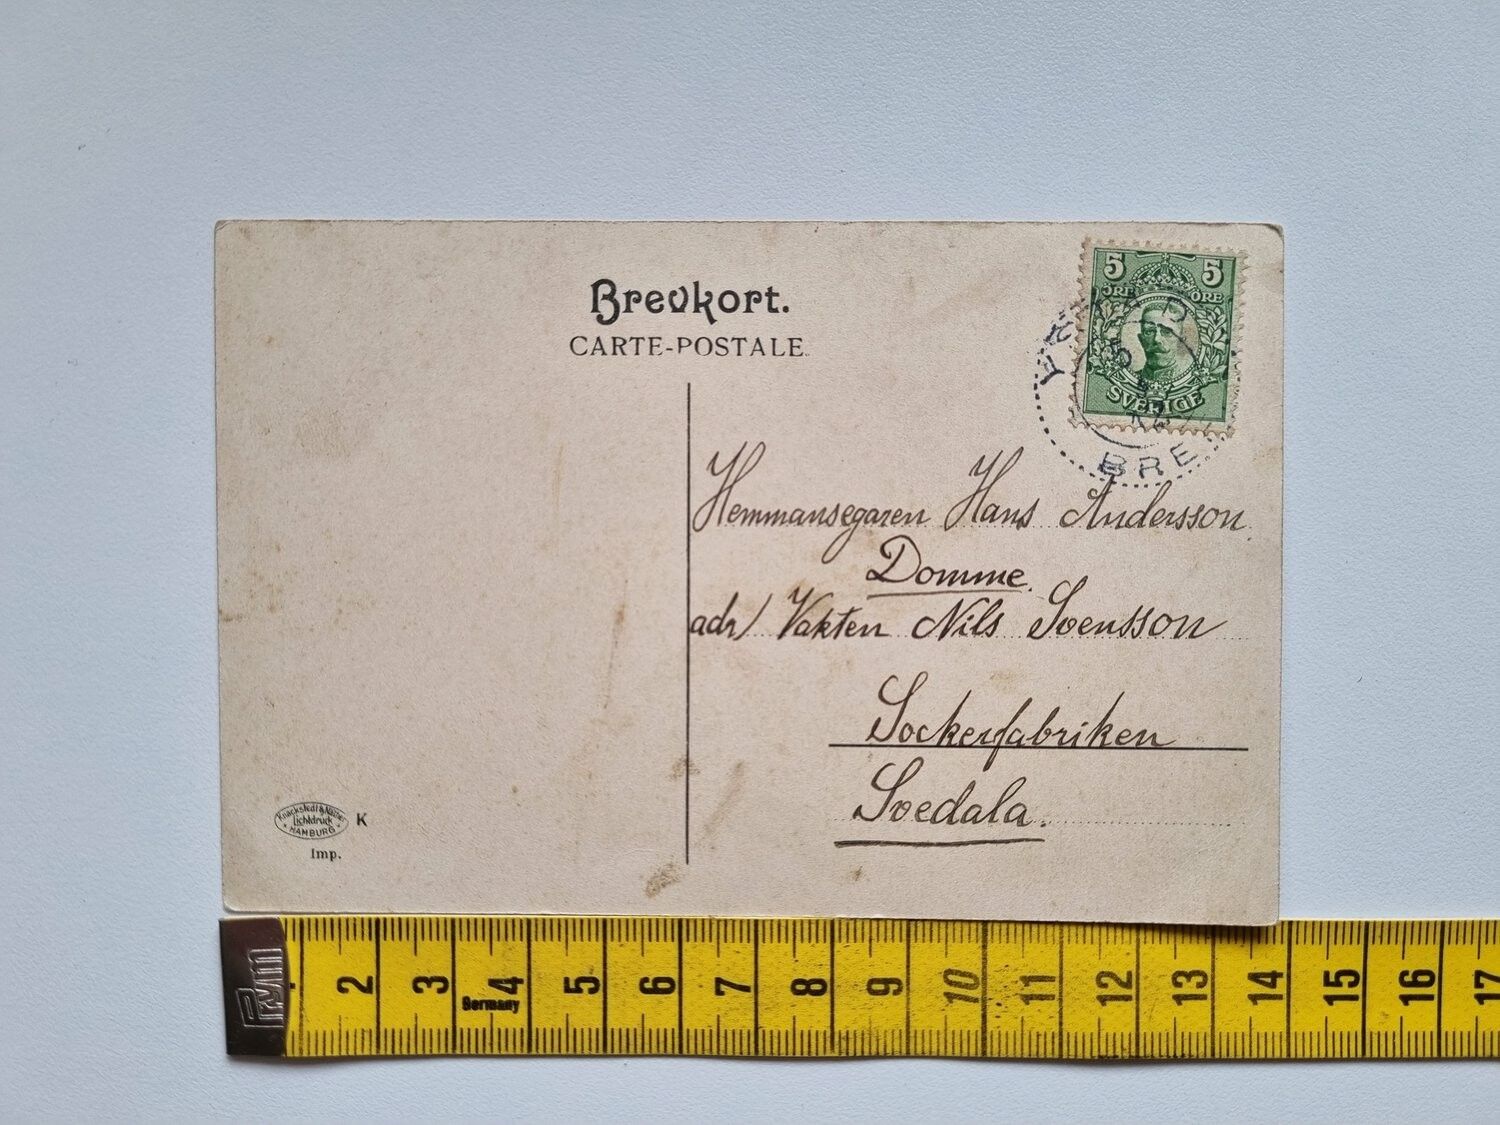 Brevkort.
CARTE-POSTALE.
5 5
ÖRE ÖRE
SVERIGE
BRE
Hemmansegaren Hans Andersson.
Domme.
adr/ Vakten Nils Svensson
Sockerfabriken
Svedala.
Knackstedt & Näther
Lichtdruck
HAMBURG
K
Imp.
Prym
2 3 4 5 6 7 8 9 10 11 12 13 14 15 16 17
Germany